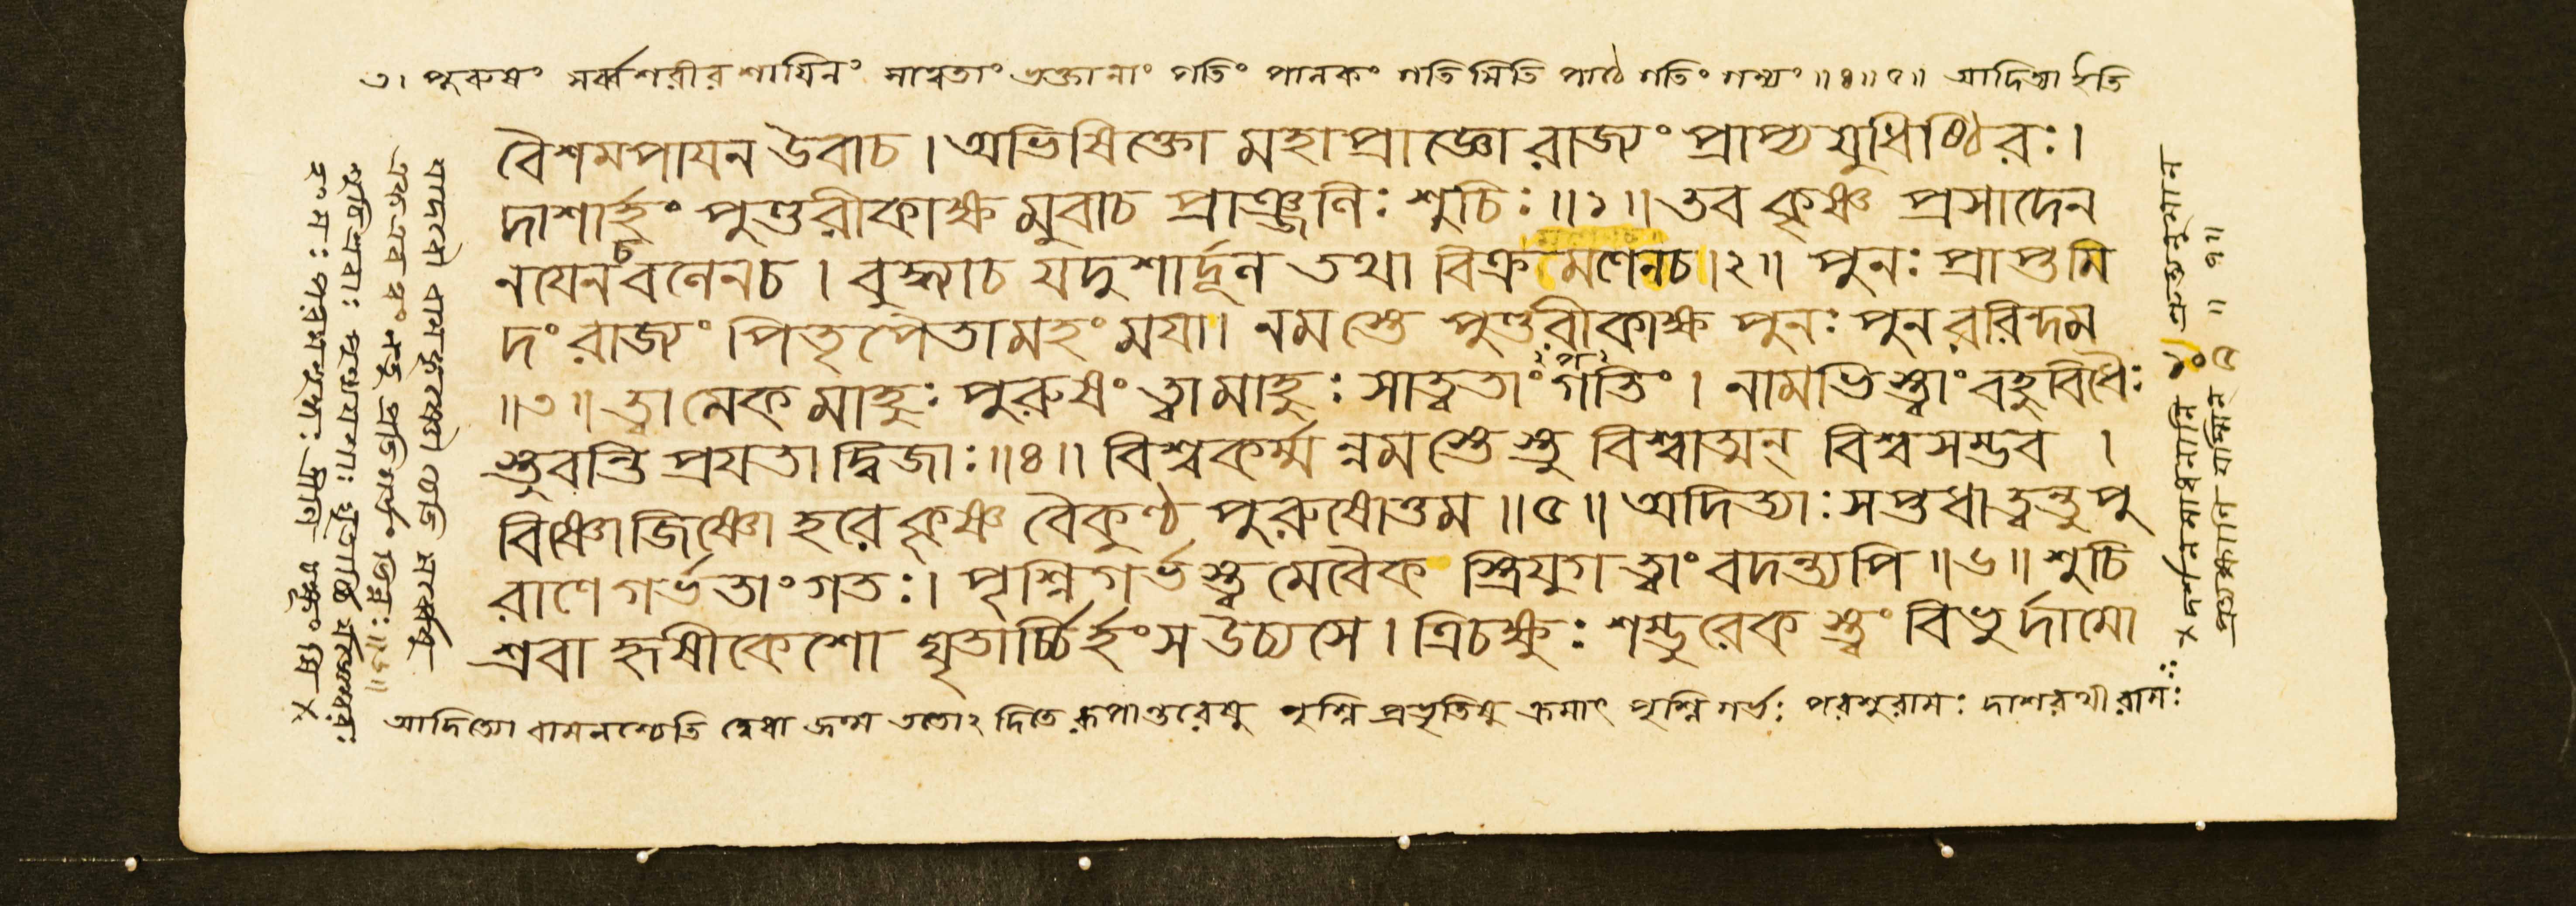 ৩। পুরুষং সর্ব্বশরীরশায়িনং সাত্বতাং ভক্তানাং পতিং পালকং গতিমিতি পাঠে গতিং গম্যং ॥৪॥৫॥ আদিত্যা ইতি
বৈশমপাযন উবাচ । অভিষিক্তো মহাপ্রাজ্ঞো রাজ্যং প্রাপ্য যুধিষ্ঠিরঃ ।
দাশার্হং পুণ্ডরীকাক্ষ মুবাচ প্রাঞ্জলিঃ শুচিঃ ॥১॥ তব কৃষ্ণ প্রসাদেন
নযেনচ বলেনচ । বুদ্ধ্যাচ যদুশার্দূল তথা বিক্রমেণেনচ ।২॥ পুনঃ প্রাপ্তমি
দং রাজ্যং পিতৃপৈতামহং মযা। নমস্তে পুণ্ডরীকাক্ষ পুনঃ পুনররিন্দম
॥৩॥ ত্বামেকমাহুঃ পুরুষং ত্বামাহুঃ সাত্বতাং গতিং । নামভিস্ত্বাং বহুবিধৈঃ
স্তুবন্তি প্রযতা দ্বিজাঃ ॥৪॥ বিশ্বকর্ম্ম ন্নমস্তেস্তু বিশ্বাত্মন্ বিশ্বসম্ভব ।
বিষ্ণোজিষ্ণো হরে কৃষ্ণ বৈকুণ্ঠ পুরুষোত্তম ॥৫॥ অদিত্যাঃ সপ্তধা ত্বন্তু পু
রাণে গর্ভতাং গতঃ । পৃশ্নিগর্ভস্ত্বমেবৈক স্ত্রিযুগ ত্বাং বদন্ত্যপি ॥৬॥ শুচি
শ্রবা হৃষীকেশো ঘৃতার্চ্চির্হংস উচ্যসে । ত্রিচক্ষুঃ শম্ভুরেকস্ত্বং বিভুর্দামো
আদিত্যো বামনশ্চেতি দ্বেধা জন্ম ততোঽদিতে রূপান্তরেষু পৃশ্নি প্রভৃতিষু ক্রমাৎ পৃশ্নিগর্ভঃ পরশুরামঃ দাশরথীরামঃ